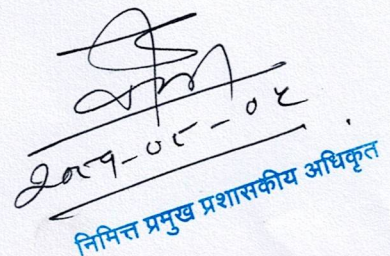 २०८१-०८-०५
निमित्त प्रमुख प्रशासकीय अधिकृत